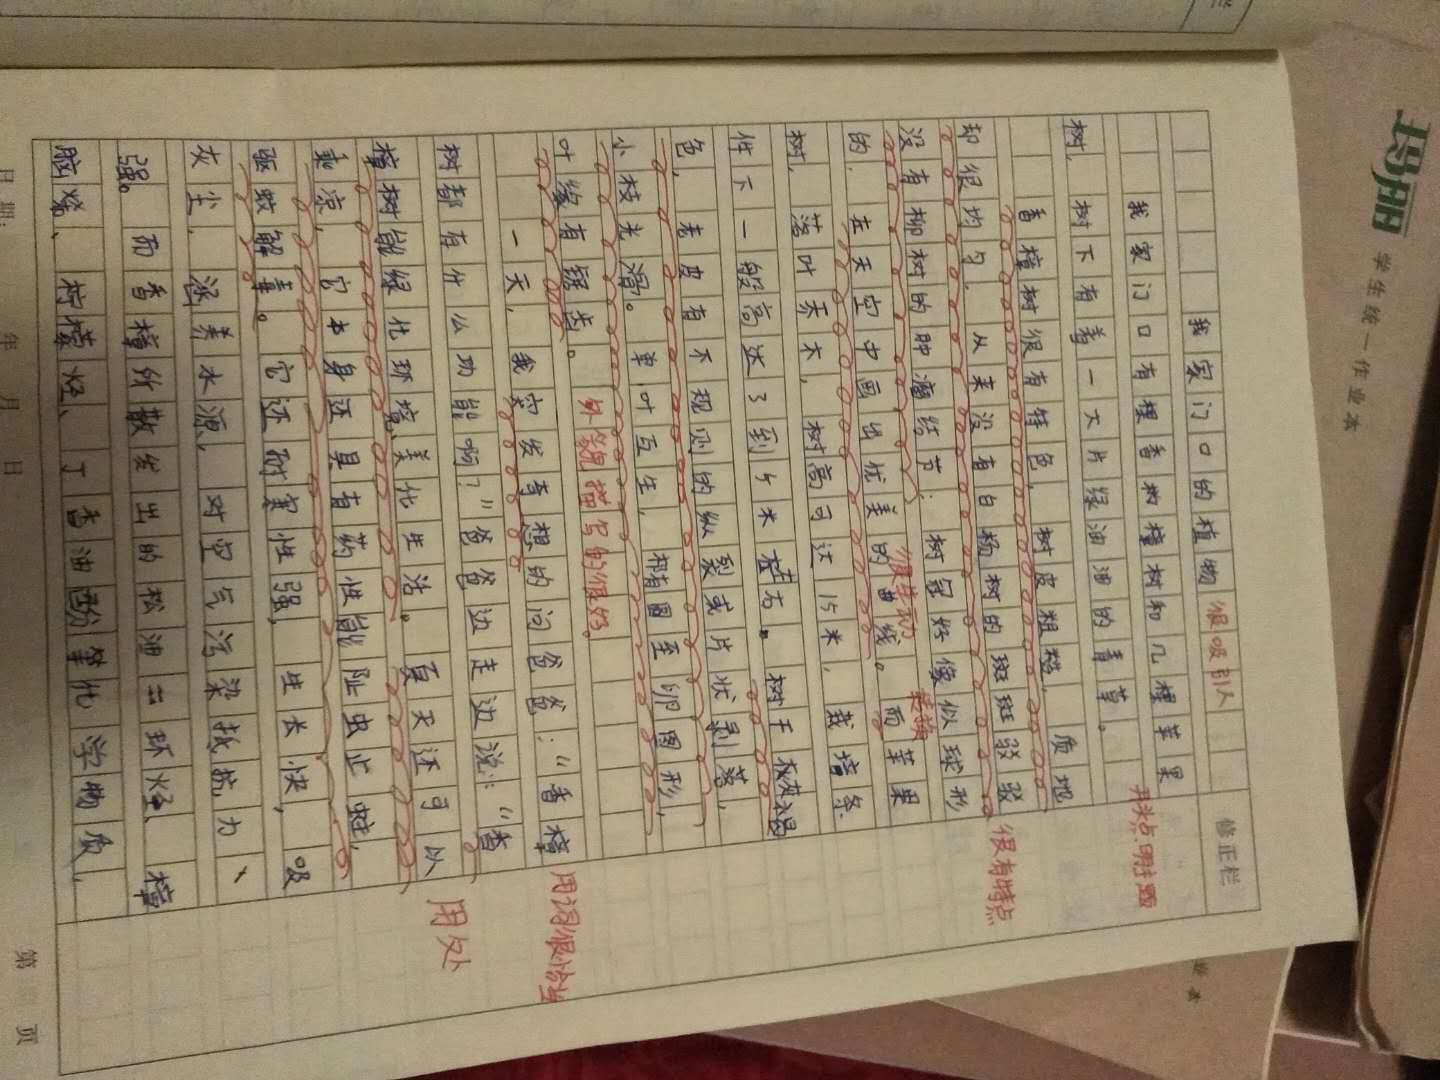 我家门口的植物 很吸引人
修正栏
我家门口有棵香樟树和几棵苹果
开头点明主题
树，树下有着一大片绿油油的青草。
香樟树很有特色，树皮粗糙，质地
却很均匀，从来没有白杨树的斑斑驳驳
很有特点
没有柳树的肿瘤结节；树冠好像似球形
的，在天空中画出优美的曲线。而苹果
很生动
树，落叶乔木，树高可达15米，栽培条
件下一般高达3到5米左右。树干灰褐
色，老皮有不规则的纵裂或片状剥落，
小枝光滑。单叶互生，椭圆至卵圆形，
叶缘有锯齿。 外貌描写的很好。
一天，我突发奇想的问爸爸："香樟
用词很恰当
树都有什么功能啊？"爸爸边走边说："香
樟树能绿化环境美化生活。夏天还可以
用处
乘凉，它本身还具有药性能阯虫止蛀，
驱蚊解毒。它还耐寒性强，生长快，吸
灰尘、涵养水源，对空气污染抵抗力、
强。而香樟所散发出的松油二环烃、樟
脑烯、柠檬烃、丁香油酚等化学物质，
日期： 年 月 日
第 页
玛丽 学生统一作业本
业本